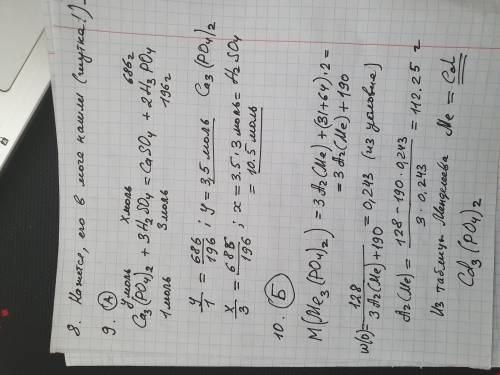 8. Кажется, его в мога нашли (шутка!)
9. А
y моль x моль 686г
Ca3(PO4)2 + 3H2SO4 = CaSO4 + 2H3PO4
1 моль 3 моль 196г
y/1 = 686/196 ; y = 3,5 моль Ca3(PO4)2
x/3 = 686/196 ; x = 3.5·3 моль = H2SO4
= 10.5 моль
10. Б
M(Me3(PO4)2) = 3Ar(Me) + (31+64)·2 =
= 3Ar(Me) + 190
w(O) = 128/(3Ar(Me) + 190) = 0,243 (из условие)
Ar(Me) = (128 - 190·0,243)/(3·0,243) = 112.25 г
Из таблицы Менделеева Me = Cd
Cd3(PO4)2